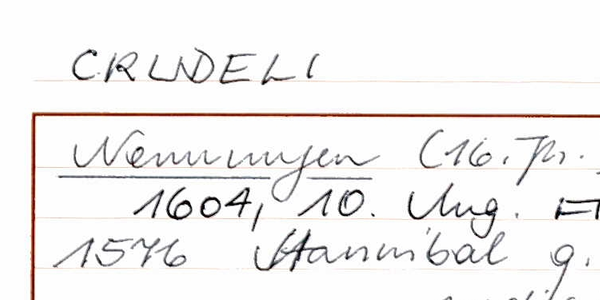 CRUDELI
Nennungen (16. Jh.
1604, 10. Aug.
1576 Hannibal g.